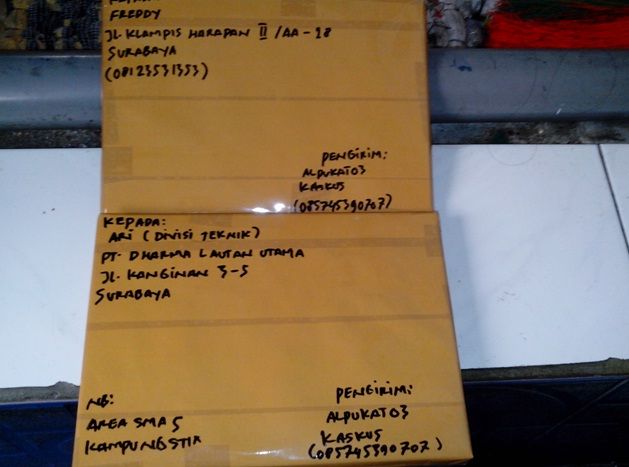 KEPADA:
FREDDY
JL. KLAMPIS HARAPAN II /AA - 28
SURABAYA
(08123531353)
PENGIRIM:
ALPUKAT03
KASKUS
(085745390707)
KEPADA:
ARI (DIVISI TEKNIK)
PT. DHARMA LAUTAN UTAMA
JL. KANGINAN 3-5
SURABAYA
NB:
AREA SMA 5
KAMPUNGSTIK
PENGIRIM:
ALPUKAT03
KASKUS
(085745390707)